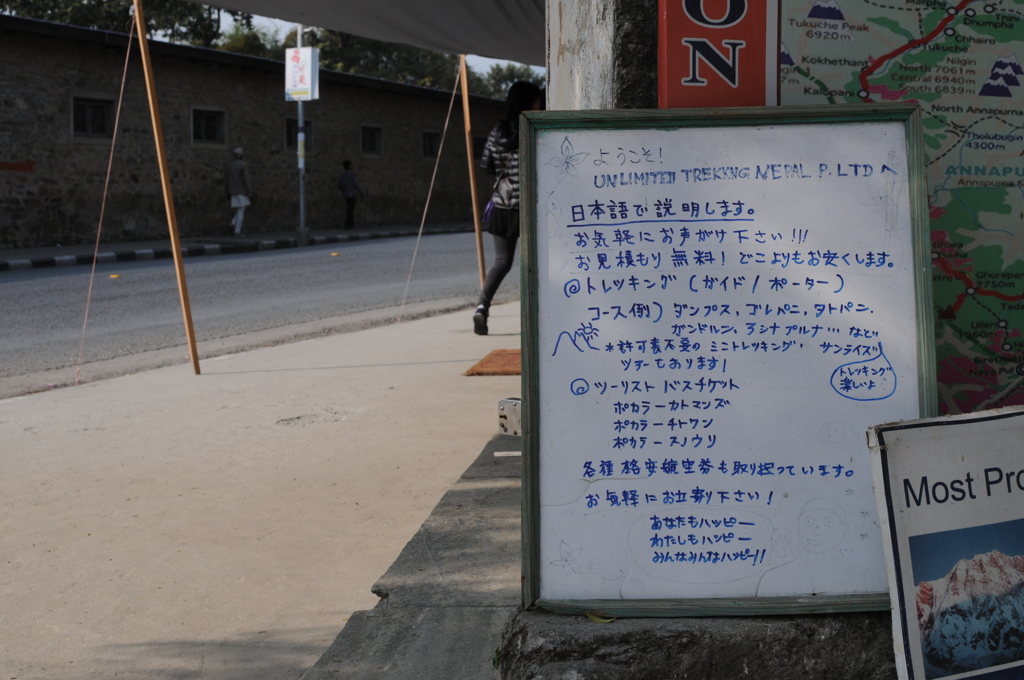 ON
Tukuche Peak
6920m
Dhumpha
Chhairo
Tukuche
Kokhethant
Nilgiri
North 7061m
Central 6940m
South 6839m
Kalopani
North Annapurna
Tholubugin
4300m
ANNAPU
Annapurna S
Ghorepan
2750m
Tada
Ulleri
1960m
ようこそ!
UNLIMITED TREKKING NEPAL P. LTD へ
日本語で説明します。
お気軽にお声がけ下さい!!!
お見積もり無料! どこよりもお安くします。
◎トレッキング (ガイド / ポーター)
コース例) ダンプス, ゴレパニ, タトパニ,
ガンドルン, アンナプルナ… など
*許可書不要のミニトレッキング・サンライズ
ツアーもあります!
トレッキング
楽しいよ
◎ツーリストバスチケット
ポカラーカトマンズ
ポカラーチトワン
ポカラースノウリ
各種格安航空券も取り扱っています。
お気軽にお立寄り下さい!
あなたもハッピー
わたしもハッピー
みんなみんなハッピー!!
Most Pro